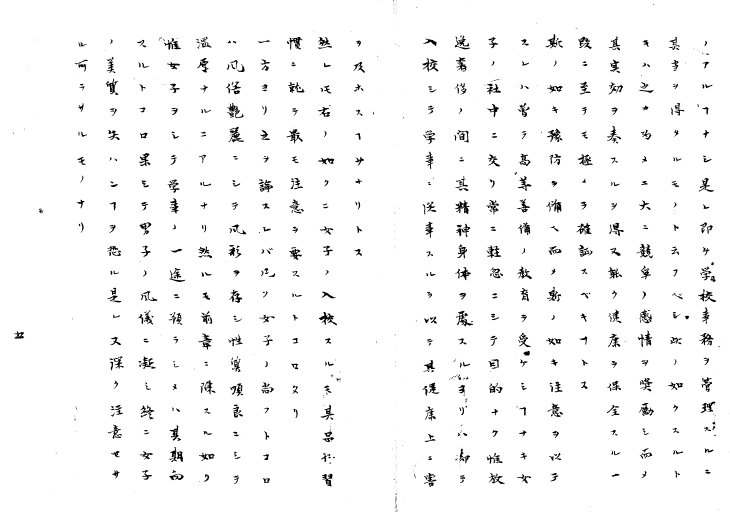 ノアルヿナシ是レ即チ学校事務ヲ管理スルニ
其宜ヲ得タルモノト云フベシ此ノ如クスルト
キハ之カ為メニ大ニ競争ノ感情ヲ奨励シ而メ
其実効ヲ奏スルヲ得又能ク健康ヲ保全スル一
段ニ至テモ極メテ確認スベキナトス
斯ノ如キ豫防ヲ備ヘ而メ斯ノ如キ注意ヲ以テ
スレハ曽テ高等善備ノ教育ヲ受ケシヿナキ女
子ノ社中ニ交リ常ニ軽忽ニシテ目的ナク惟放
逸奢侈ノ間ニ其精神身体ヲ處スルヨリハ却テ
入校シテ学事ニ従事スルヲ以テ其健康上ニ害
ヲ及ホスヿサナリトス
然レ𪜈右ノ如クニ女子ノ入校スル𪜈其品行習
慣ニ就テ最モ注意ヲ要スルトコロアリ
一方ヨリ之ヲ論スレバ凡ソ女子ノ尚フトコロ
ハ風俗艶麗ニシテ風形ヲ存シ性質順良ニシテ
温厚ナルニアルナリ然ル𪜈前章ニ陳スル如ク
惟女子ヲシテ学事ノ一途ニ頼ラシメハ其期向
スルトコロ果シテ男子ノ風儀ニ凝シ終ニ女子
ノ美質ヲ失ハンヿヲ恐ル是レ又深ク注意セサ
ル可ラサルモノナリ